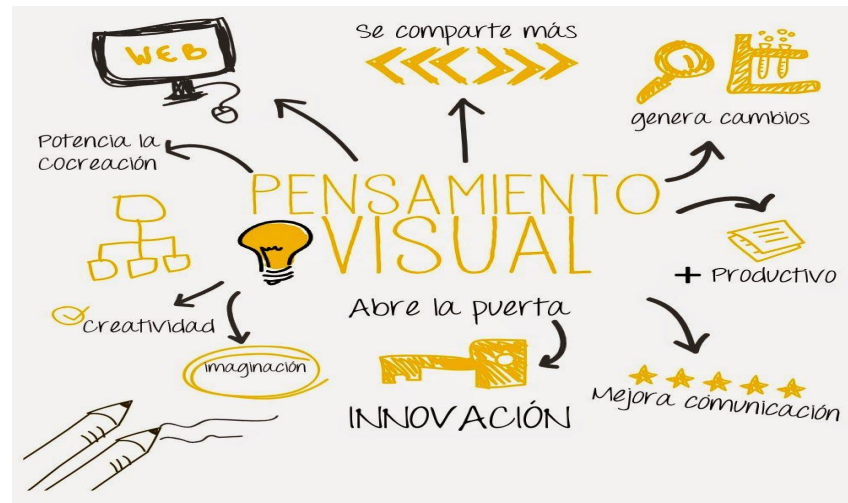 WEB
Se comparte más
genera cambios
Potencia la
cocreación
PENSAMIENTO
VISUAL
+ Productivo
Creatividad
imaginación
Abre la puerta
INNOVACIÓN
Mejora comunicación